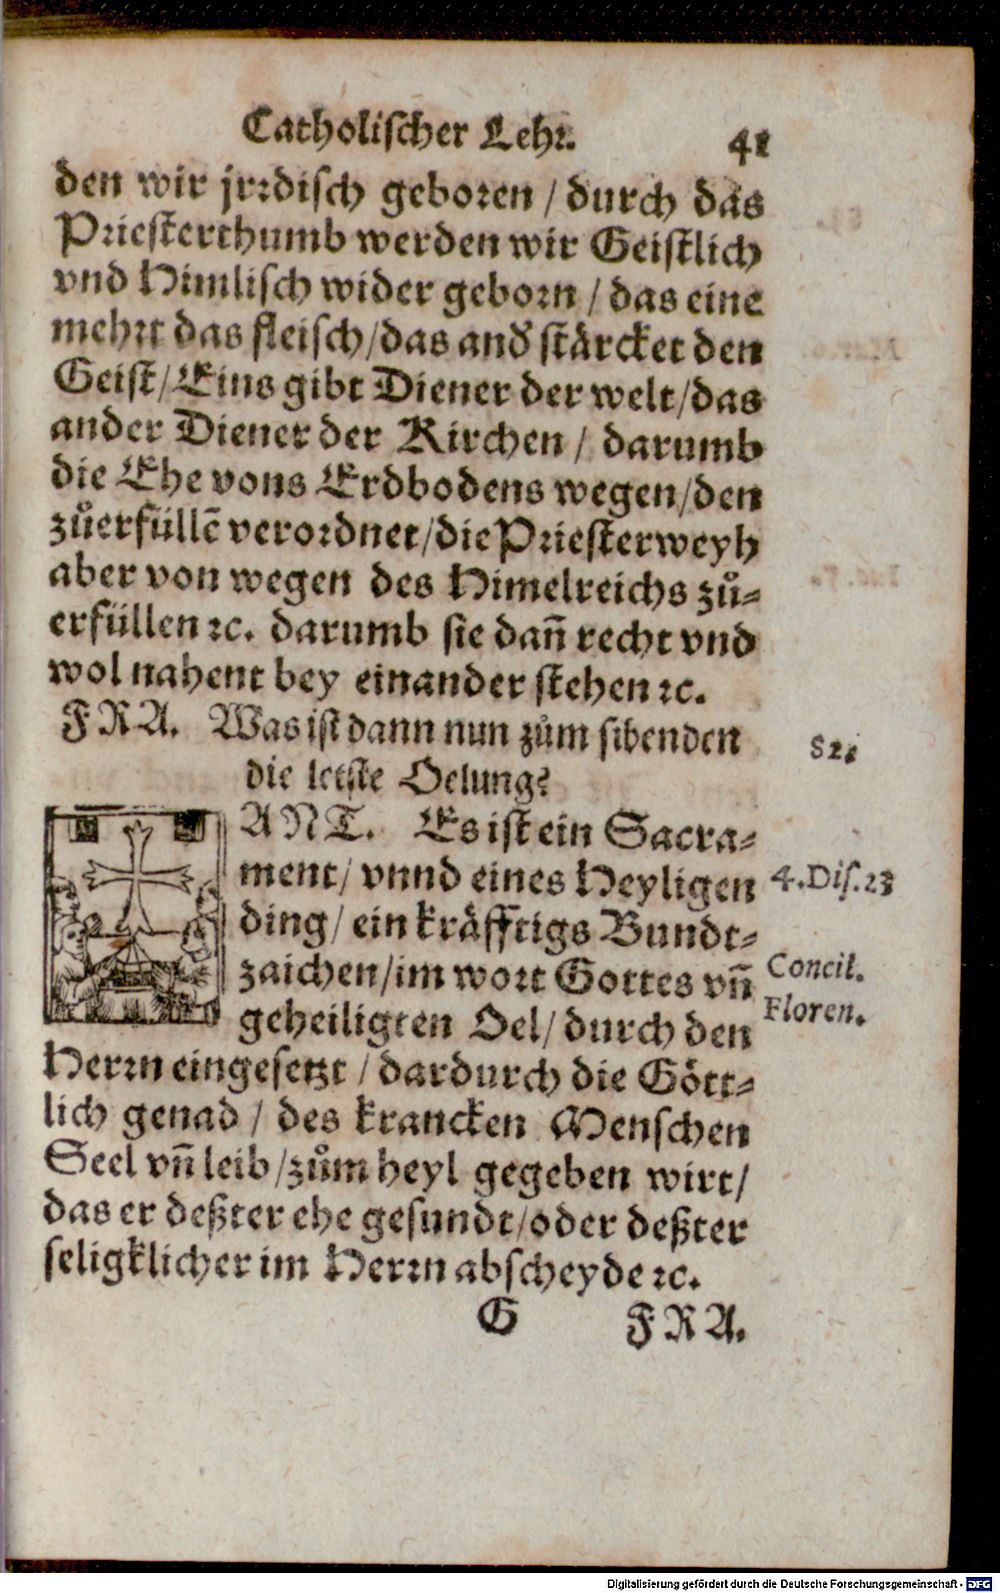 Catholischer Lehr. 41
den wir jrrdisch geboren / durch das
Priesterthumb werden wir Geistlich
vnd Himlisch wider geborn / das eine
mehrt das fleisch / das and̕ stärcket den
Geist / Eins gibt Diener der welt / das
ander Diener der Kirchen / darumb
die Ehe vons Erdbodens wegen / den
zůerfüllē verordnet / die Priesterweyh
aber von wegen des Himelreichs zů-
erfüllen ꝛc. darumb sie dañ recht vnd
wol nahent bey einander stehen ꝛc.
FRA. Was ist dann nun zům sibenden
die letste Oelung?
82.
ANT. Es ist ein Sacra-
ment / vnnd eines Heyligen
4. Dis. 23
ding / ein kräfftigs Bundt-
zaichen / im wort Gottes vñ
Concil.
Floren.
geheiligten Oel / durch den
Herrn eingesetzt / dardurch die Gött-
lich genad / des krancken Menschen
Seel vñ leib / zům heyl gegeben wirt /
das er deßter ehe gesundt / oder deßter
seligklicher im Herrn abscheyde ꝛc.
G FRA.
Digitalisierung gefördert durch die Deutsche Forschungsgemeinschaft - DFG